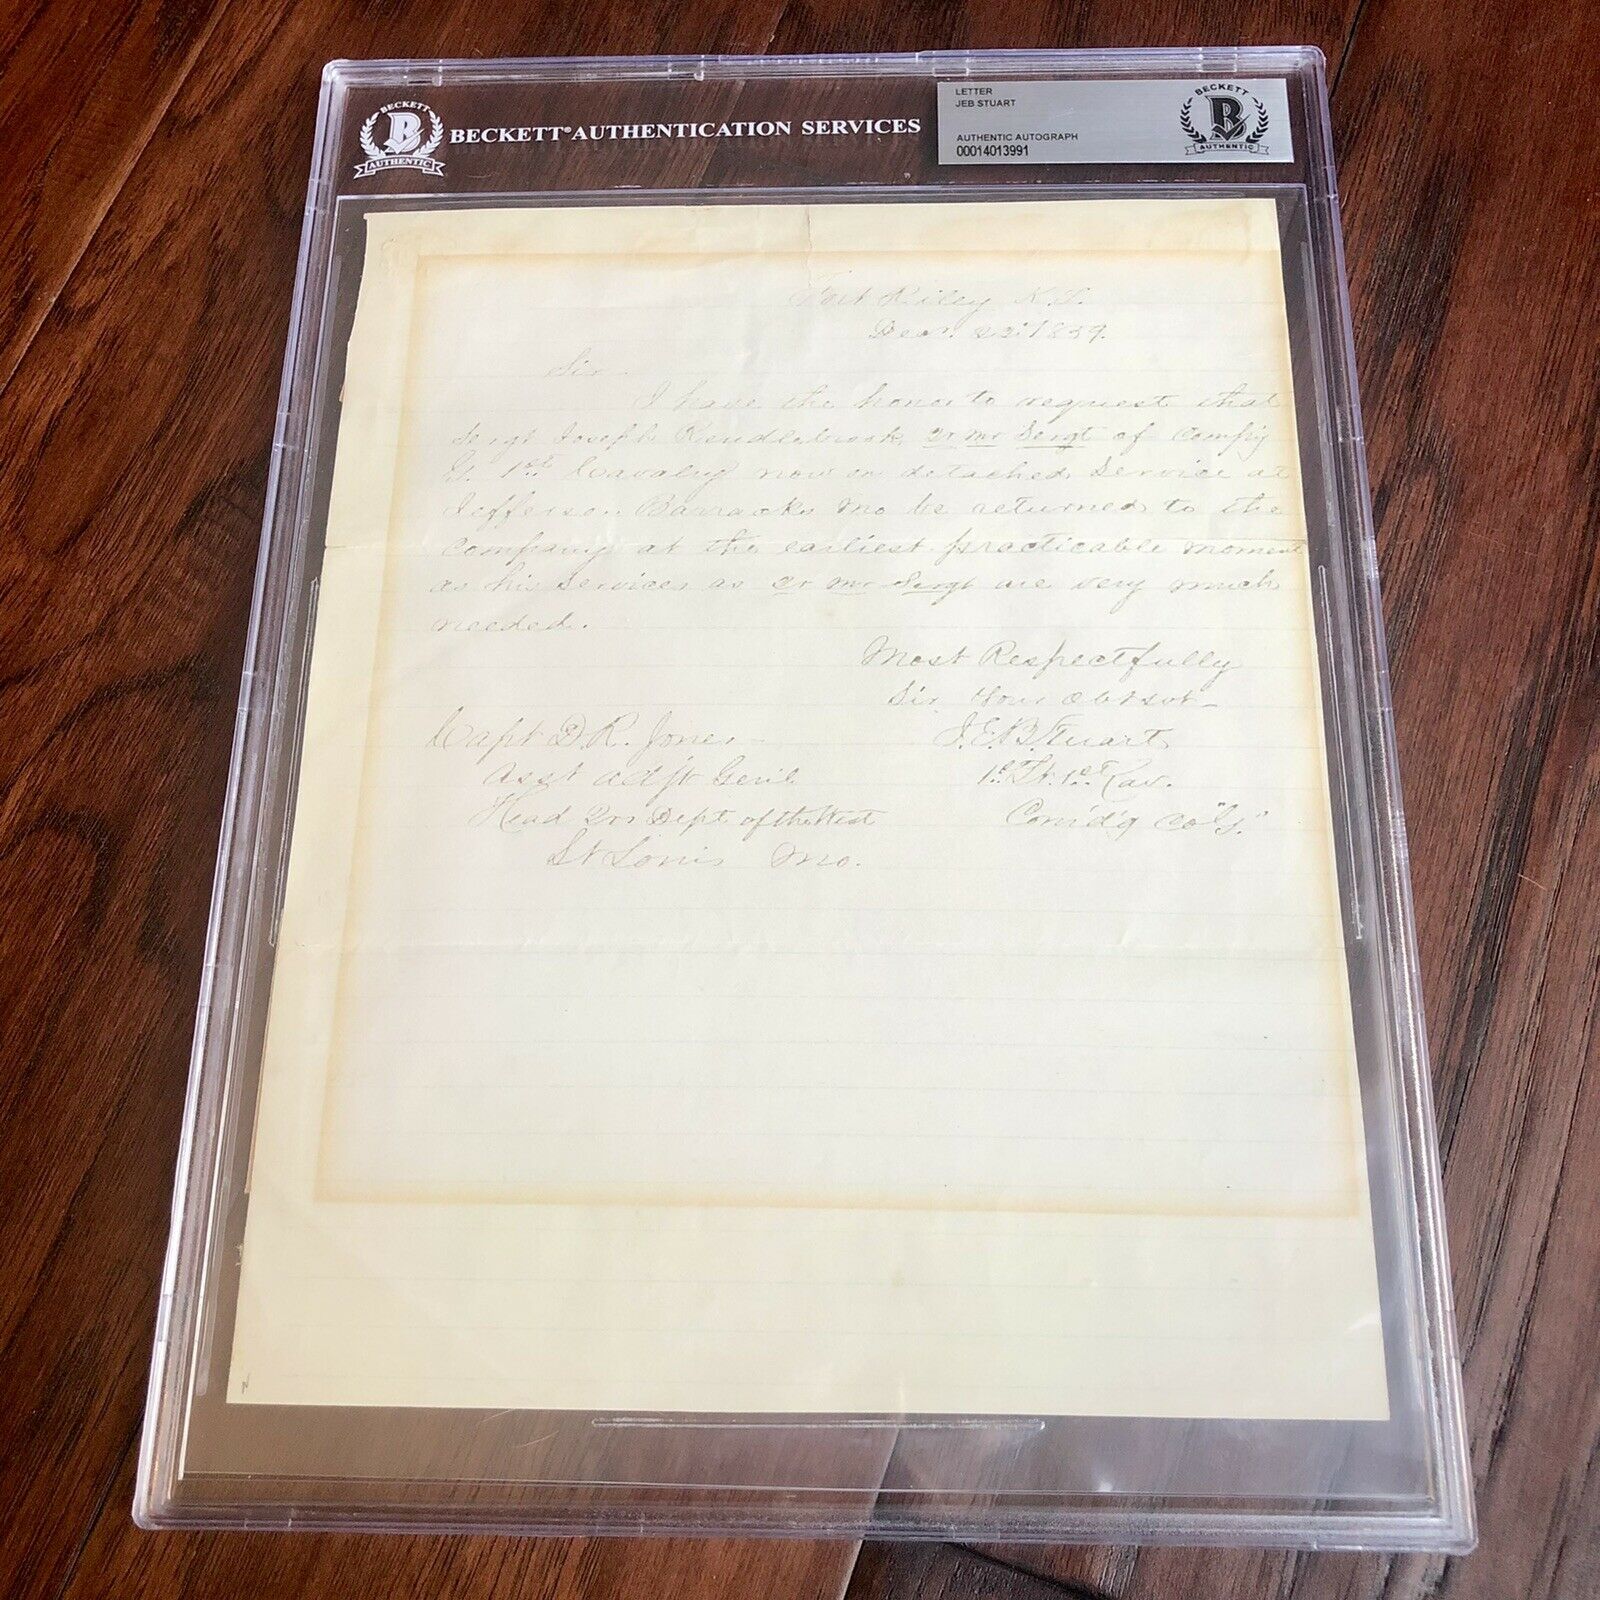 BECKETT
B
AUTHENTIC
BECKETT® AUTHENTICATION SERVICES
LETTER
JEB STUART
AUTHENTIC AUTOGRAPH
00014013991
BECKETT
B
AUTHENTIC
Fort Riley K.T.
Decr. 22d 1859.
Sir.
I have the honor to request that
Sergt Joseph Kendlebrook, Qr Mr Sergt of Comp'y
G. 1st Cavalry now on detached service at
Jefferson Barracks Mo be returned to the
company at the earliest practicable moment
as his services as Qr Mr Sergt are very much
needed.
Most Respectfully
Sir Your Obt svt
J.E.B. Stuart
1st Lt. 1st Cav.
Com'd'g Co "G."
Capt D.R. Jones
Asst Adjt Genl
Head Qrs Dept of the West
St Louis Mo.